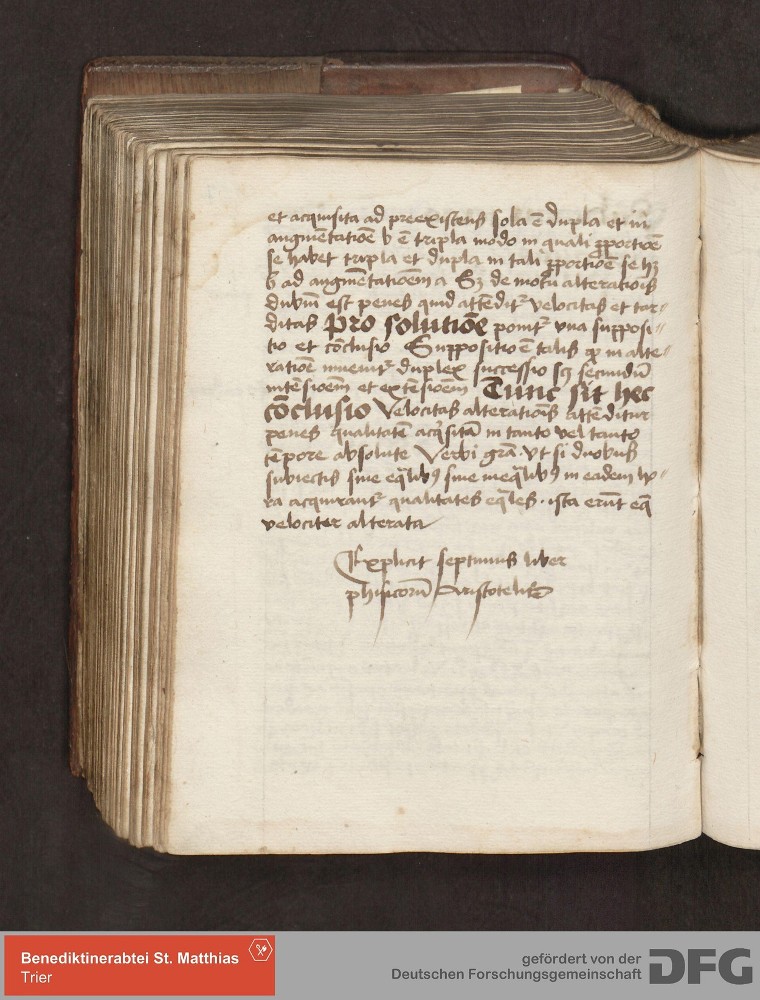 et acquisita ad preexistens sola ē dupla et in
augmētatiōe b ē tripla modo in quali ꝓportiōe
se habet tripla et dupla in tali ꝓportiōe se hꝫ
b ad augmētatiōem a Sꝫ de motu alteratiōis
dubiū est penes quid attēditr velocitas et tar⸗
ditas Pro solutiōe ponitr vna supposi⸗
tio et cōclusio Suppositio ē talis ꝙ in alte⸗
ratiōe inuenitr duplex successio scꝫ secundū
intēsioēm et extēsioēm Tunc sit hec
cōclusio Velocitas alteratiōis attēditur
penes qualitatē acq̄sitā in tanto vel tanto
tēpore absolute Verbi grā vt si duobus
subiectis siue eq̄libꝰ siue ineq̄libꝰ in eadem ho⸗
ra acquirantr qualitates eq̄les · ista erūt eq̄
velociter alterata
Explicit septimus liber
phisicorū Aristotelis
Benediktinerabtei St. Matthias
Trier
gefördert von der
Deutschen Forschungsgemeinschaft
DFG